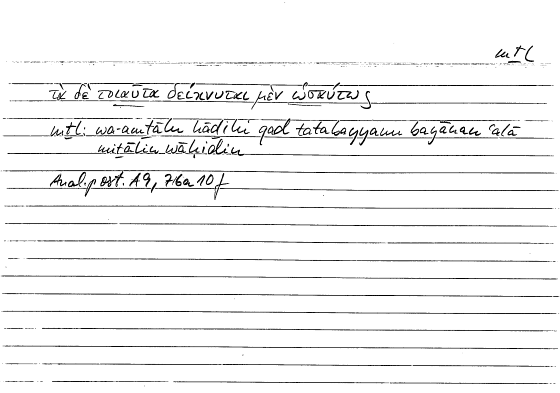 mṯl
τὰ δὲ τοιαῦτα δείκνυται μὲν ὡσαύτως
mṯl: wa-amṯālu hāḏihi qad tatabayyanu bayānan ʿalā
miṯālin wāḥidin
Anal. post. A9, 76a 10f